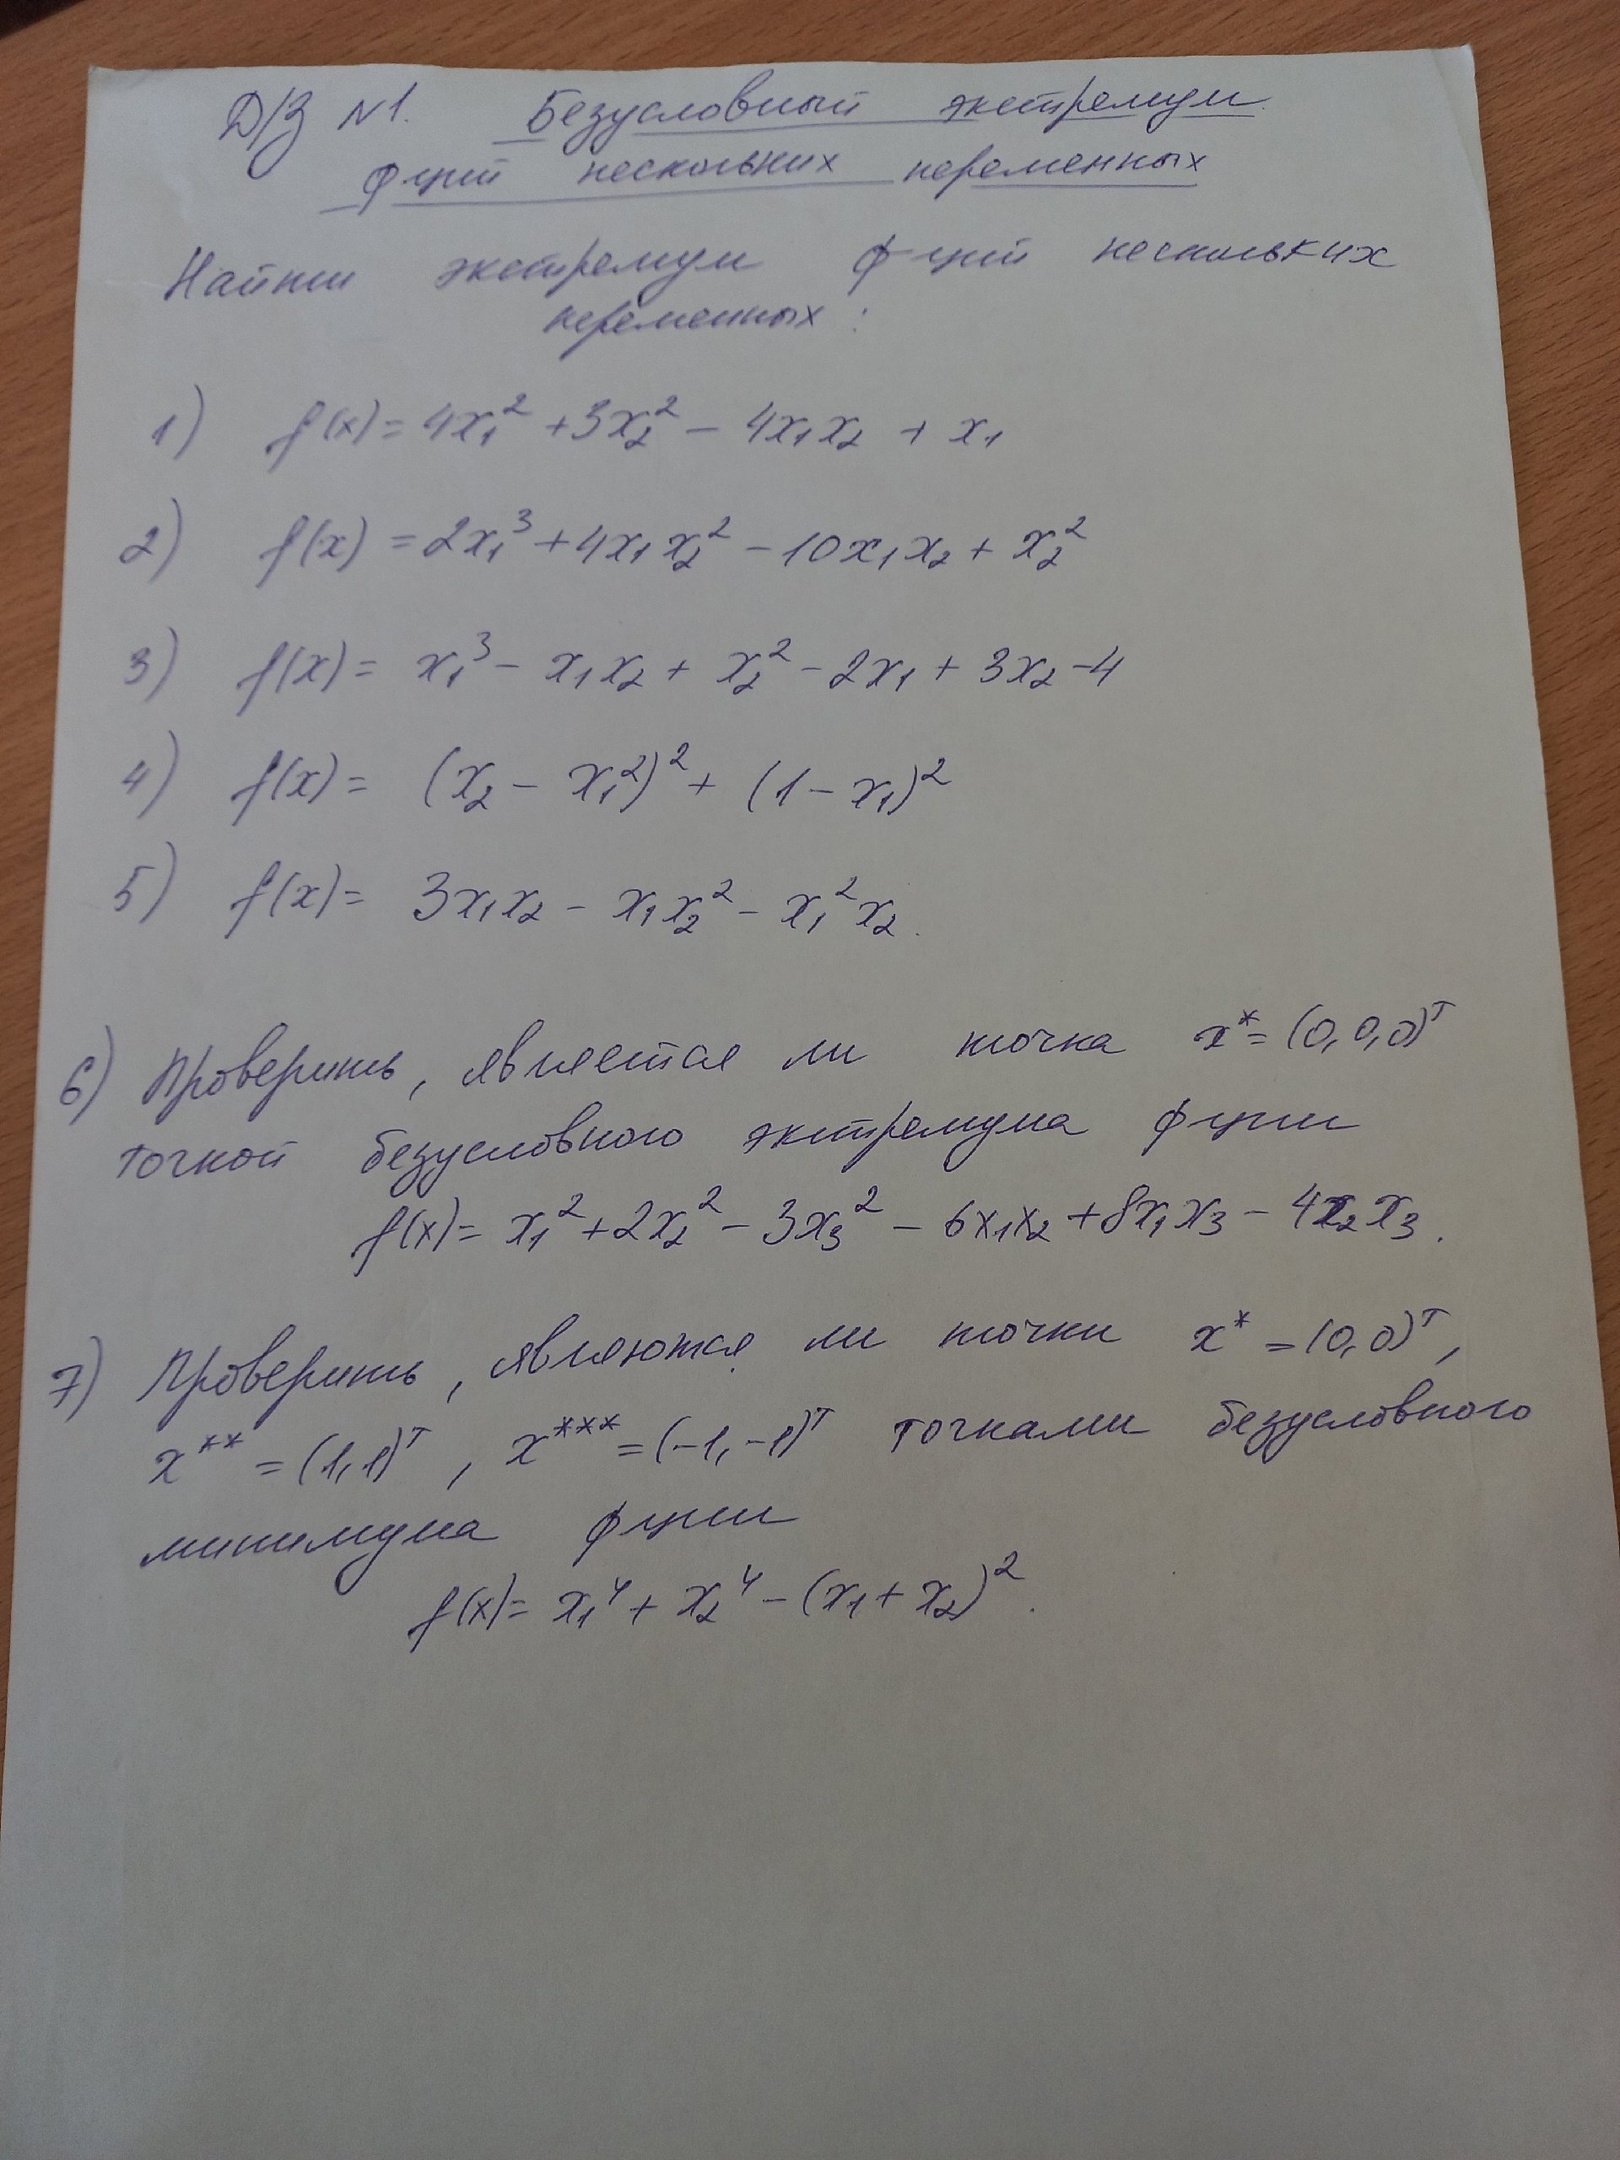 Д/З №1. Безусловный экстремум
ф-ций нескольких переменных
Найти экстремум ф-ций нескольких
переменных:
1) f(x) = 4x₁² + 3x₂² - 4x₁x₂ + x₁
2) f(x) = 2x₁³ + 4x₁x₂² - 10x₁x₂ + x₂²
3) f(x) = x₁³ - x₁x₂ + x₂² - 2x₁ + 3x₂ - 4
4) f(x) = (x₂ - x₁²)² + (1 - x₁)²
5) f(x) = 3x₁x₂ - x₁x₂² - x₁²x₂.
6) Проверить, является ли точка x* = (0, 0, 0)ᵀ
точкой безусловного экстремума ф-ции
f(x) = x₁² + 2x₂² - 3x₃² - 6x₁x₂ + 8x₁x₃ - 4x₂x₃.
7) Проверить, являются ли точки x* = (0, 0)ᵀ,
x** = (1, 1)ᵀ, x*** = (-1, -1)ᵀ точками безусловного
минимума ф-ции
f(x) = x₁⁴ + x₂⁴ - (x₁ + x₂)².